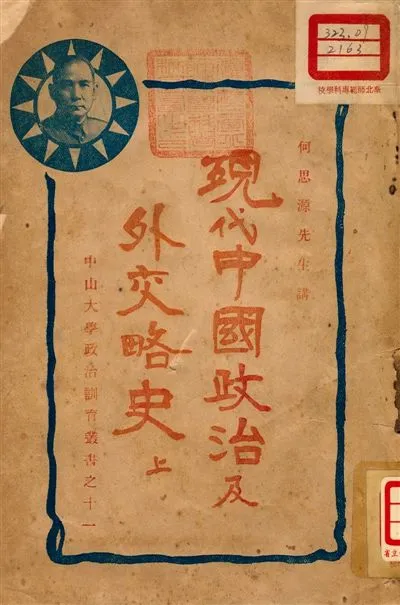 323.07
2163
臺北師範專科學校
何思源先生講
現代中國政治及
外交略史 上
中山大學政治訓育叢書之十一